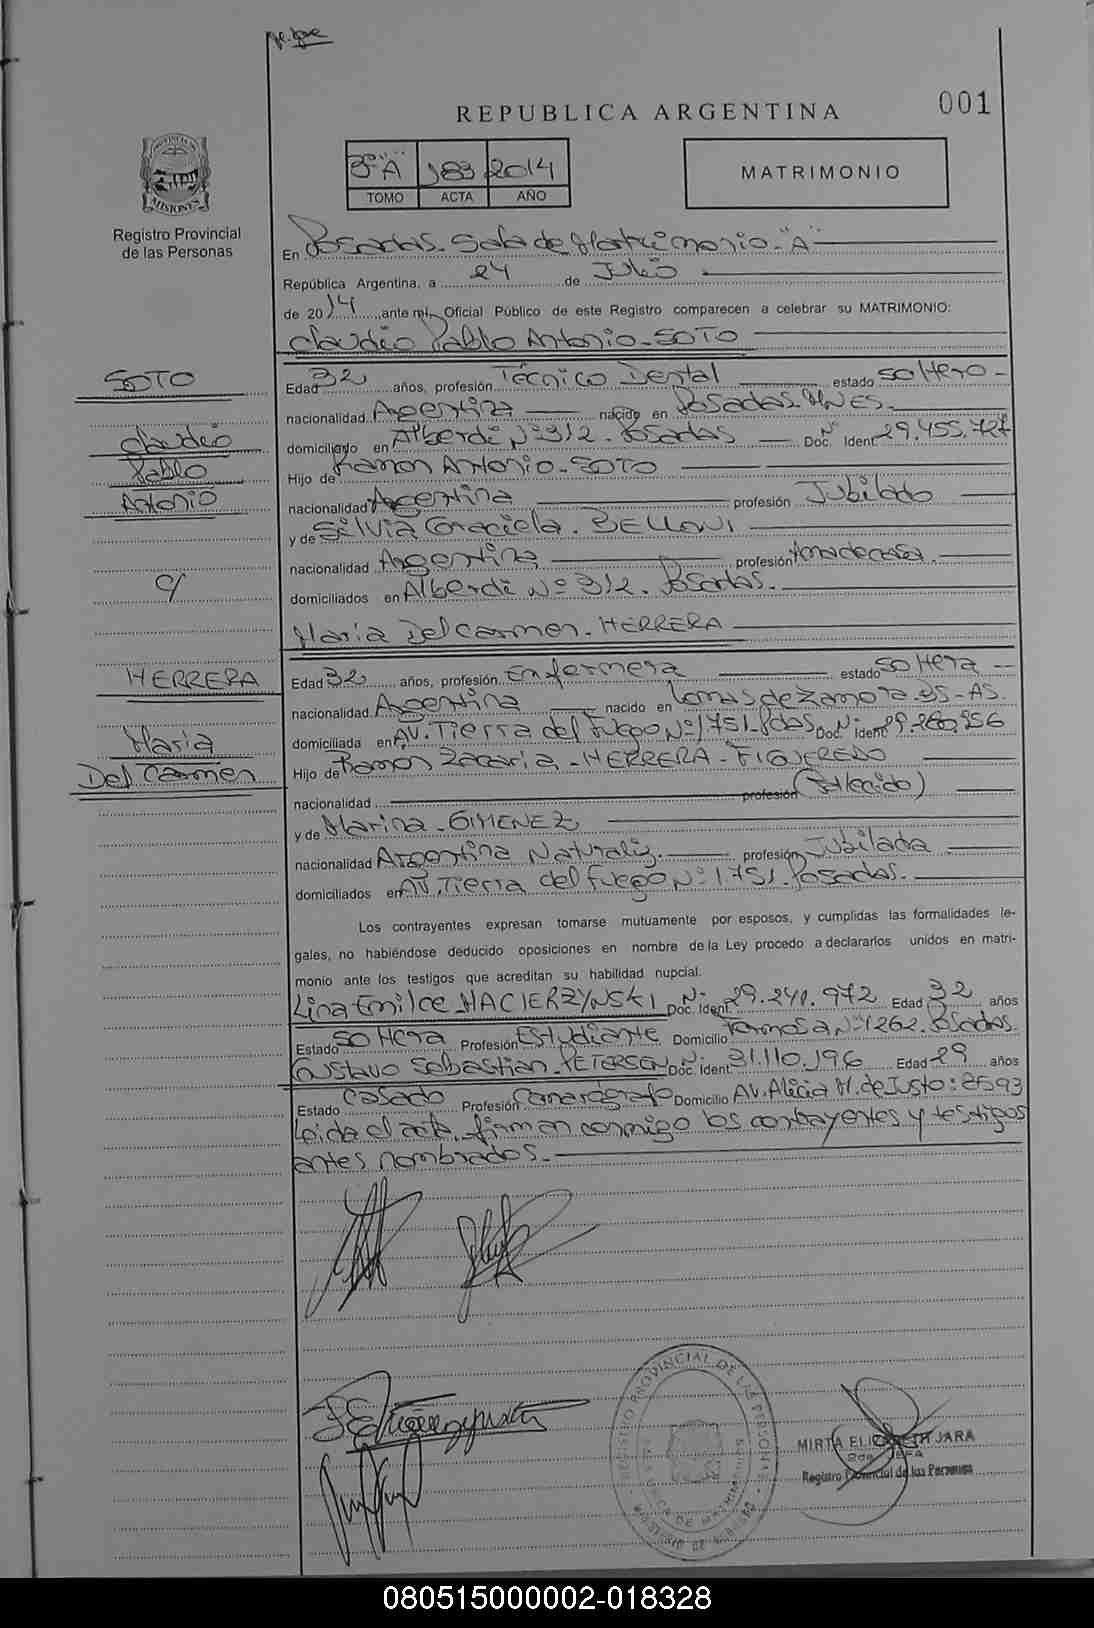 001
REPUBLICA ARGENTINA
3º "A" 183 2014
TOMO ACTA AÑO
MATRIMONIO
PROVINCIA DE MISIONES
Registro Provincial
de las Personas
En Posadas - Sala de Matrimonio - "A"
República Argentina, a 24 de Julio
de 2014, ante mí, Oficial Público de este Registro comparecen a celebrar su MATRIMONIO:
Claudio Pablo Antonio - SOTO
SOTO
Claudio
Pablo
Antonio
c/
HERRERA
Maria
Del Carmen
Edad 32 años, profesión Técnico Dental estado soltero -
nacionalidad Argentina nacido en Posadas. MNES.
domiciliado en Alberdi Nº 312. Posadas Doc. Ident. Nº 29.455.727
Hijo de Ramon Antonio - SOTO
nacionalidad Argentina profesión Jubilado
y de Silvia Graciela. BELLONI
nacionalidad Argentina profesión Amadecasa.
domiciliados en Alberdi Nº 312. Posadas.
Maria Del Carmen. HERRERA
Edad 32 años, profesión Enfermera estado soltera --
nacionalidad Argentina nacido en Lomas de Zamora. BS - AS.
domiciliada en AV. Tierra del Fuego Nº 1751. Pdas Doc. Ident. Nº 29.260.256
Hijo de Ramon Zacaria. - HERRERA - FIGUEREDO
nacionalidad profesión (Fallecido)
y de Marina - GIMENEZ
nacionalidad Argentina Naturaliz. profesión Jubilada
domiciliados en AV. Tierra del Fuego Nº 1751. Posadas.
Los contrayentes expresan tomarse mutuamente por esposos, y cumplidas las formalidades le-
gales, no habiéndose deducido oposiciones en nombre de la Ley procedo a declararlos unidos en matri-
monio ante los testigos que acreditan su habilidad nupcial.
Lina Emilce MACIERZYNSKI Doc. Ident. Nº 29.241.972 Edad 32 años
Estado soltera Profesión Estudiante Domicilio Formosa Nº 1262. Posadas.
Gustavo Sebastian. PETERSEN Doc. Ident. Nº 31.110.196 Edad 29 años
Estado Casado Profesión Camarógrafo Domicilio AV. Alicia M. de Justo: 2593
Leida el acta, firman conmigo los contrayentes y testigos
antes nombrados. -
REGISTRO PROVINCIAL DE LAS PERSONAS
MIRTA ELIZABETH JARA
2da JEFA
Registro Provincial de las Personas
080515000002-018328